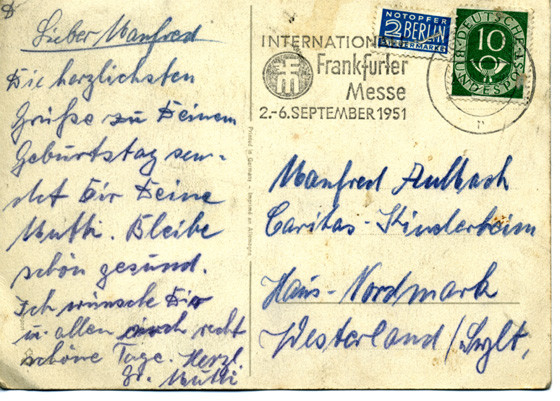 Lieber Manfred
Die herzlichsten
Grüße zu Deinem
Geburtstag sen-
det Dir Deine
Mutti. Bleibe
schön gesund.
Ich wünsche Dir
u. allen noch recht
schöne Tage. Herzl.
Gr. Mutti
NOTOPFER
2 BERLIN
STEUERMARKE
DEUTSCHE BUNDESPOST
10
INTERNATION
Frankfurter
Messe
2.-6. SEPTEMBER 1951
Printed in Germany
Manfred Aulbach
Caritas-Kinderheim
Haus-Nordmark
Westerland/Sylt,